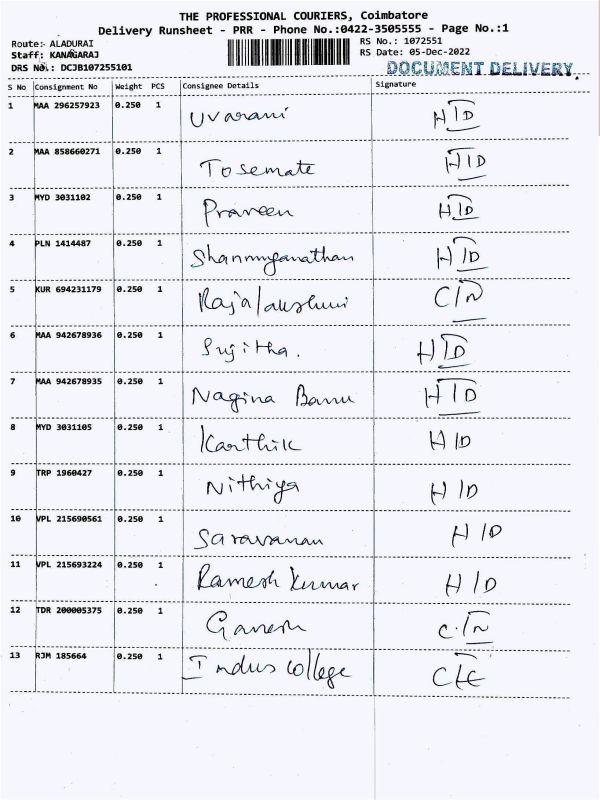 THE PROFESSIONAL COURIERS, Coimbatore
Delivery Runsheet - PRR - Phone No.:0422-3505555 - Page No.:1
Route:- ALADURAI
RS No.: 1072551
Staff: KANAGARAJ
RS Date: 05-Dec-2022
DRS No.: DCJB107255101
DOCUMENT DELIVERY.
S No Consignment No Weight PCS Consignee Details Signature
1 MAA 296257923 0.250 1 Uvarani H/D
2 MAA 858660271 0.250 1 Tosemate H/D
3 MYD 3031102 0.250 1 Praveen H/D
4 PLN 1414487 0.250 1 Shanmuganathan H/D
5 KUR 694231179 0.250 1 Rajalakshmi C/N
6 MAA 942678936 0.250 1 Sujitha. H/D
7 MAA 942678935 0.250 1 Nagina Banu H/D
8 MYD 3031105 0.250 1 Karthik H/D
9 TRP 1960427 0.250 1 Nithiya H/D
10 VPL 215690561 0.250 1 Saravanan H/D
11 VPL 215693224 0.250 1 Ramesh Kumar H/D
12 TDR 200005375 0.250 1 Ganesh C/N
13 RJM 185664 0.250 1 Indus College